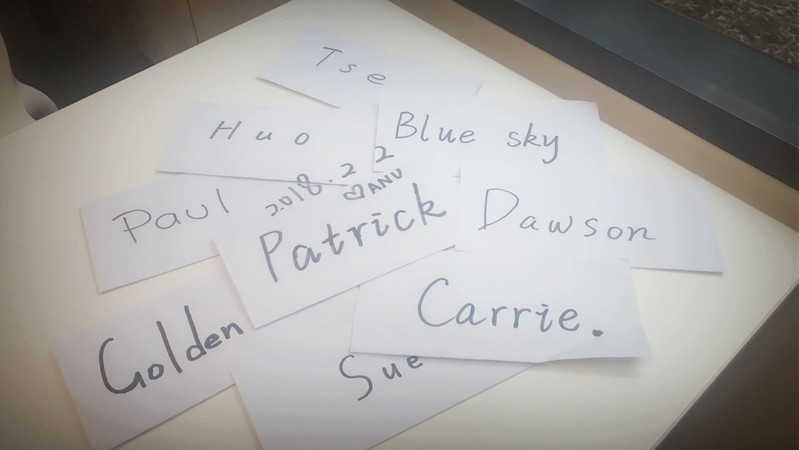 Tse
Huo
Blue sky
Paul
2018.2 2
ANU
Patrick
Dawson
Carrie.
Golden
Sue